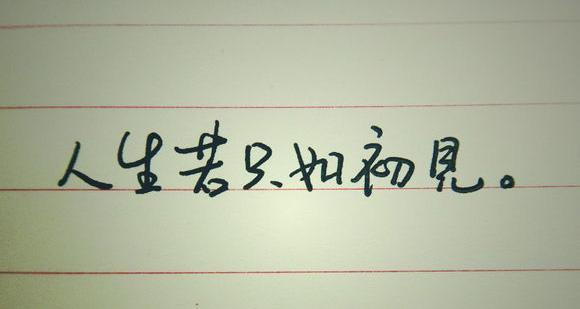 人生若只如初見。